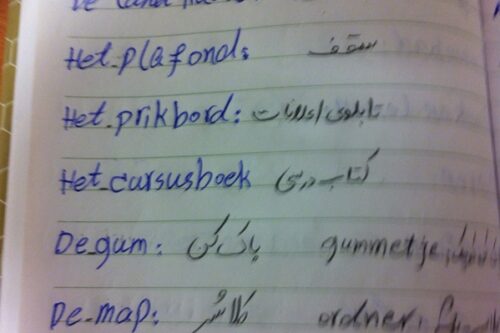 Het plafond: سقف
Het prikbord: تابلوی اعلانات
Het cursusboek کتاب درسی
De gum: پاک کن gummetje
De map: کلاسُر ordner,